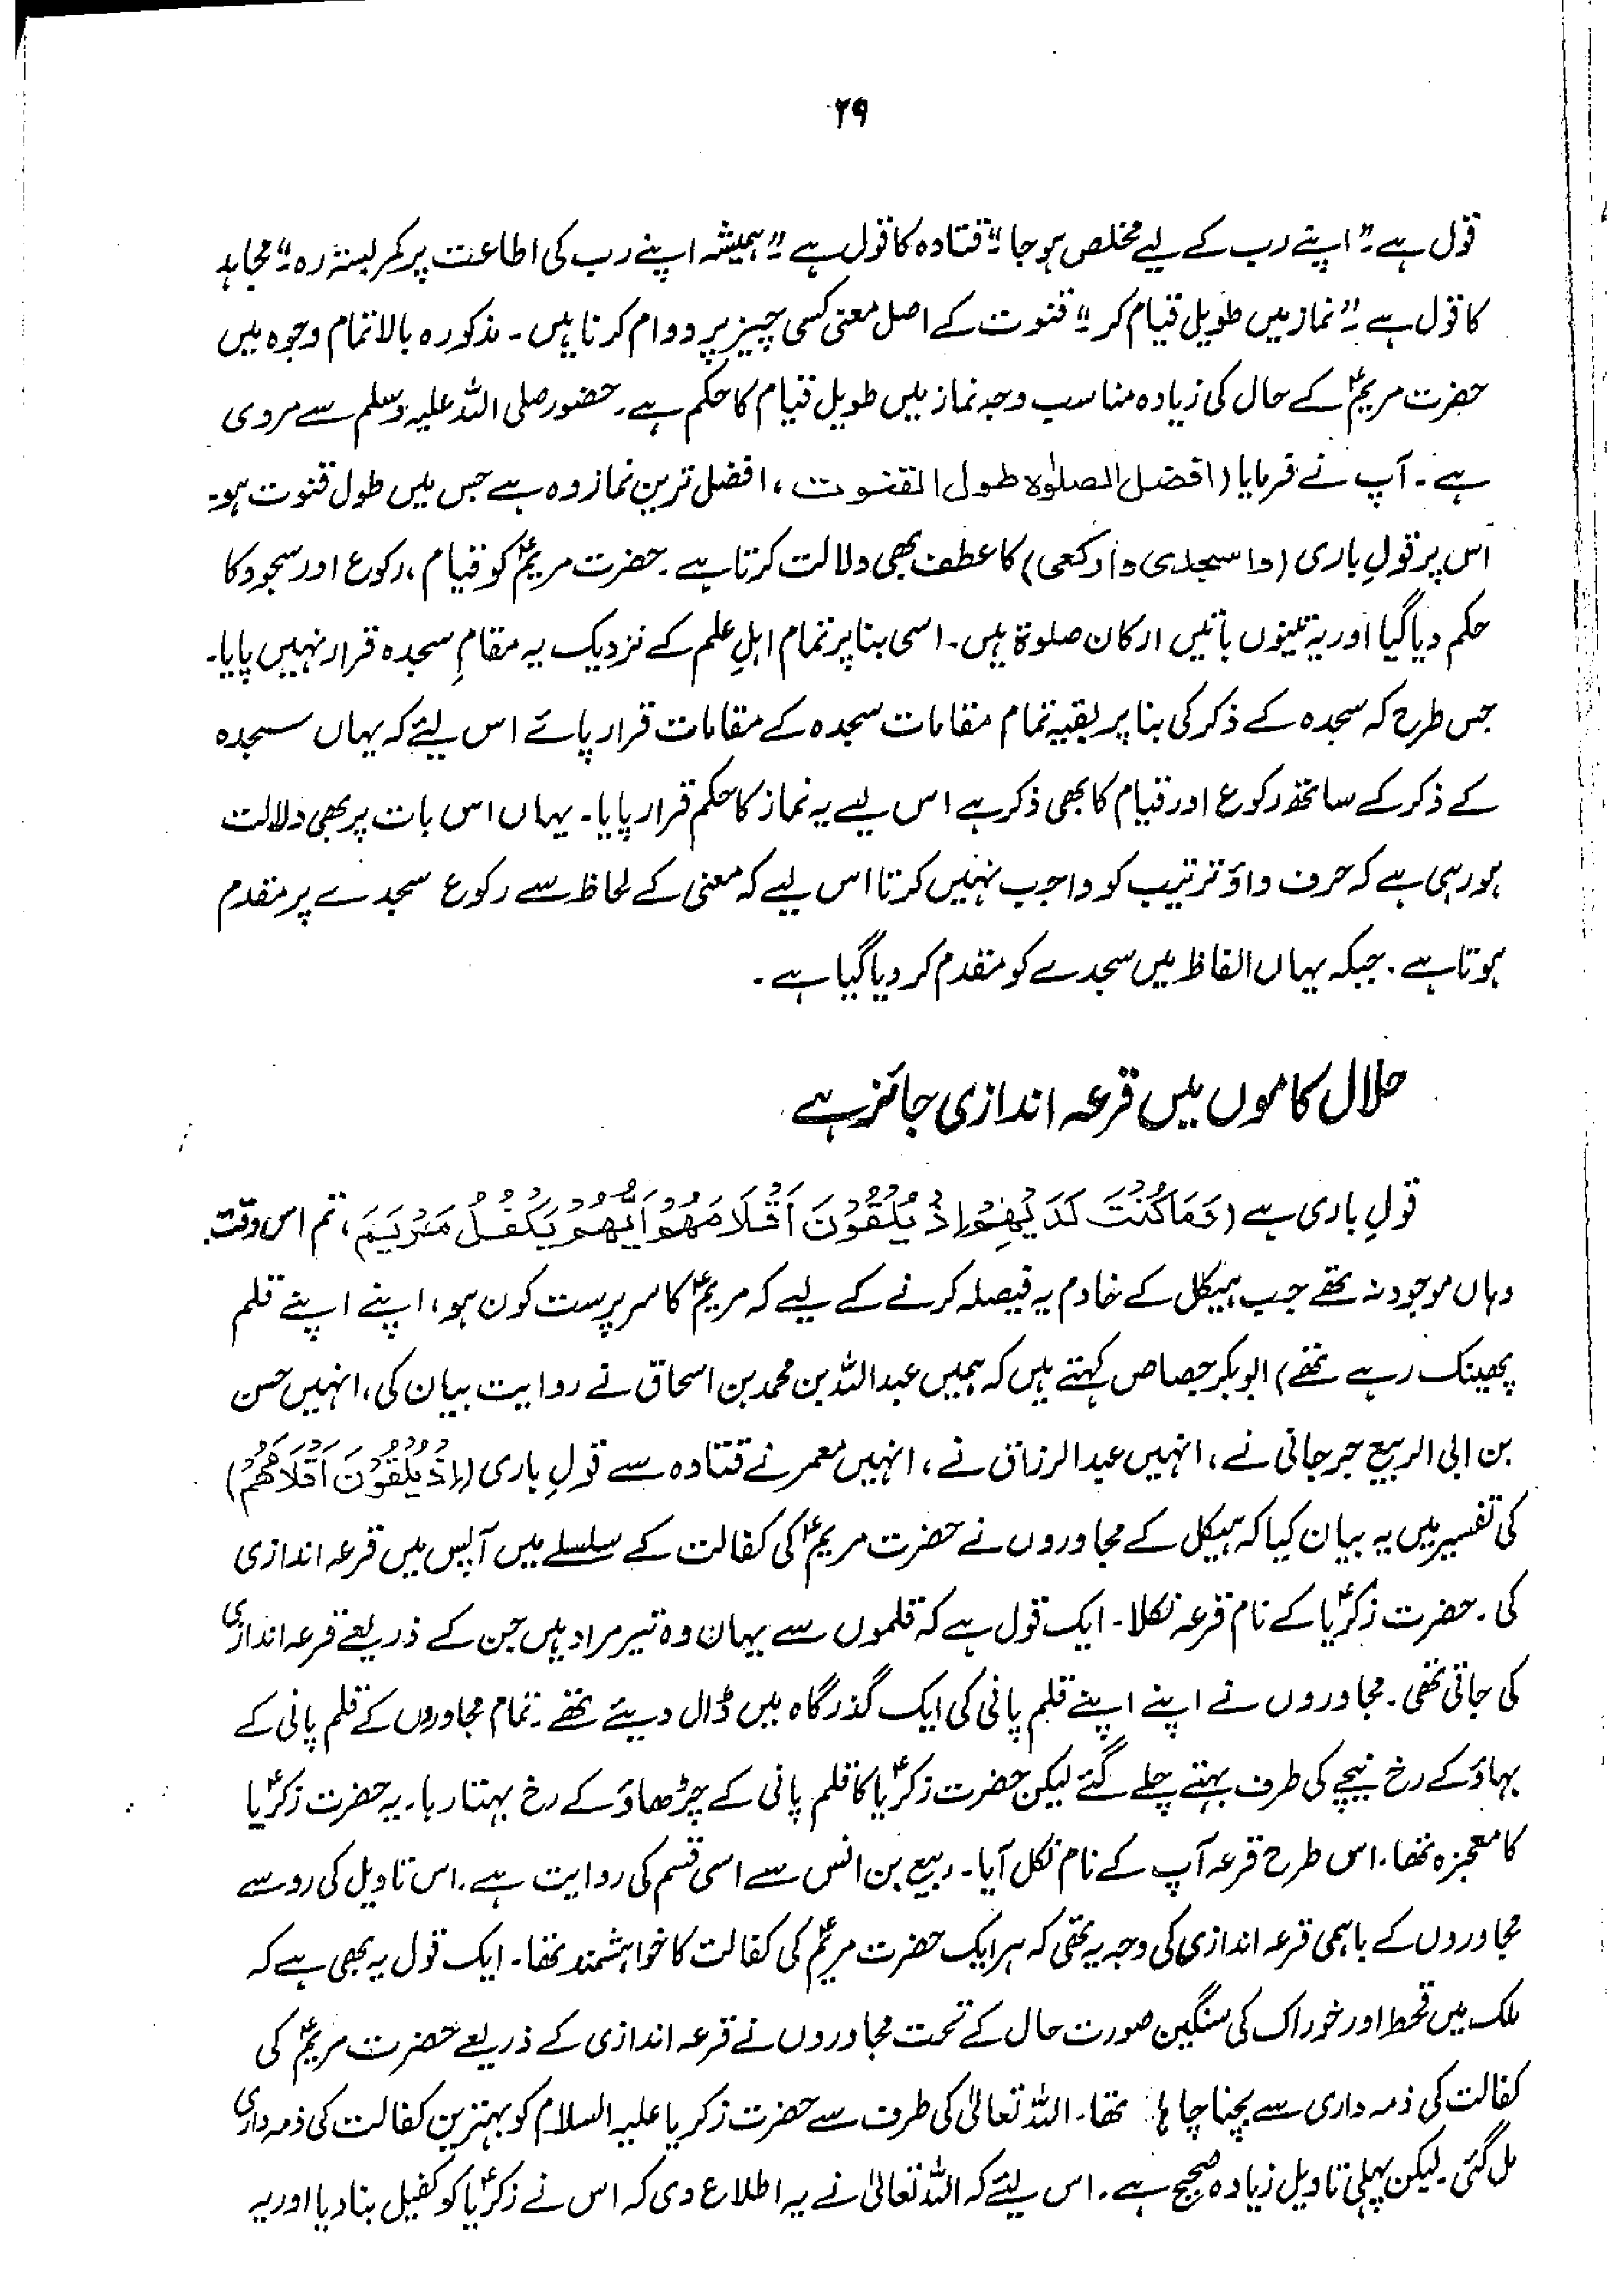 ۲۹
قول ہے "اپنے رب کے لیے مخلص ہو جا" قتادہ کا قول ہے "ہمیشہ اپنے رب کی اطاعت پر کمر بستہ رہ" مجاہد
کا قول ہے "نماز میں طویل قیام کر" قنوت کے اصل معنی کسی چیز پر دوام کرنا ہیں۔ مذکورہ بالا تمام وجوہ میں
حضرت مریمؑ کے حال کی زیادہ مناسب وجہ نماز میں طویل قیام کا حکم ہے۔ حضور صلی اللہ علیہ وسلم سے مروی
ہے۔ آپ نے فرمایا (افضل الصلوٰۃ طول القنوت، افضل ترین نماز وہ ہے جس میں طول قنوت ہو۔
اس پر قولِ باری (واسجدی وارکعی) کا عطف بھی دلالت کرتا ہے۔ حضرت مریمؑ کو قیام، رکوع اور سجود کا
حکم دیا گیا اور یہ تینوں باتیں ارکان صلوٰۃ ہیں۔ اسی بنا پر تمام اہلِ علم کے نزدیک یہ مقامِ سجدہ قرار نہیں پایا۔
جس طرح کہ سجدہ کے ذکر کی بنا پر بقیہ تمام مقامات سجدہ کے مقامات قرار پائے اس لیئے کہ یہاں سجدہ
کے ذکر کے ساتھ رکوع اور قیام کا بھی ذکر ہے اس لیے یہ نماز کا حکم قرار پایا۔ یہاں اس بات پر بھی دلالت
ہو رہی ہے کہ حرف واؤ ترتیب کو واجب نہیں کرتا اس لیے کہ معنی کے لحاظ سے رکوع سجدے پر مقدم
ہوتا ہے۔ جبکہ یہاں الفاظ میں سجدے کو مقدم کر دیا گیا ہے۔
حلال کاموں میں قرعہ اندازی جائز ہے
قولِ باری ہے (وَمَا كُنْتَ لَدَيْهِمْ إِذْ يُلْقُوْنَ اَقْلَامَهُمْ اَيُّهُمْ يَكْفُلُ مَرْيَمَ، تم اس وقت
وہاں موجود نہ تھے جب ہیکل کے خادم یہ فیصلہ کرنے کے لیے کہ مریمؑ کا سرپرست کون ہو، اپنے اپنے قلم
پھینک رہے تھے) ابوبکر جصاص کہتے ہیں کہ ہمیں عبداللہ بن محمد بن اسحاق نے روایت بیان کی، انہیں حسن
بن ابی الربیع جرجانی نے، انہیں عبدالرزاق نے، انہیں معمر نے قتادہ سے قولِ باری (اِذْ يُلْقُوْنَ اَقْلَامَهُمْ)
کی تفسیر میں یہ بیان کیا کہ ہیکل کے مجاوروں نے حضرت مریمؑ کی کفالت کے سلسلے میں آپس میں قرعہ اندازی
کی۔ حضرت زکریاؑ کے نام قرعہ نکلا۔ ایک قول ہے کہ قلموں سے یہان وہ تیر مراد ہیں جن کے ذریعے قرعہ اندازی
کی جاتی تھی۔ مجاوروں نے اپنے اپنے قلم پانی کی ایک گذرگاہ میں ڈال دیئے تھے۔ تمام مجاوروں کے قلم پانی کے
بہاؤ کے رخ نیچے کی طرف بہتے چلے گئے لیکن حضرت زکریاؑ کا قلم پانی کے چڑھاؤ کے رخ بہتا رہا۔ یہ حضرت زکریاؑ
کا معجزہ تھا۔ اس طرح قرعہ آپ کے نام نکل آیا۔ ربیع بن انس سے اسی قسم کی روایت ہے۔ اس تاویل کی رو سے
مجاوروں کے باہمی قرعہ اندازی کی وجہ یہ تھی کہ ہر ایک حضرت مریمؑ کی کفالت کا خواہشمند تھا۔ ایک قول یہ بھی ہے کہ
ملک میں قحط اور خوراک کی سنگین صورت حال کے تحت مجاوروں نے قرعہ اندازی کے ذریعے حضرت مریمؑ کی
کفالت کی ذمہ داری سے بچنا چاہا تھا۔ اللہ تعالیٰ کی طرف سے حضرت زکریا علیہ السلام کو بہترین کفالت کی ذمہ داری
مل گئی۔ لیکن پہلی تاویل زیادہ صحیح ہے۔ اس لیئے کہ اللہ تعالیٰ نے یہ اطلاع دی کہ اس نے زکریاؑ کو کفیل بنا دیا اور یہ